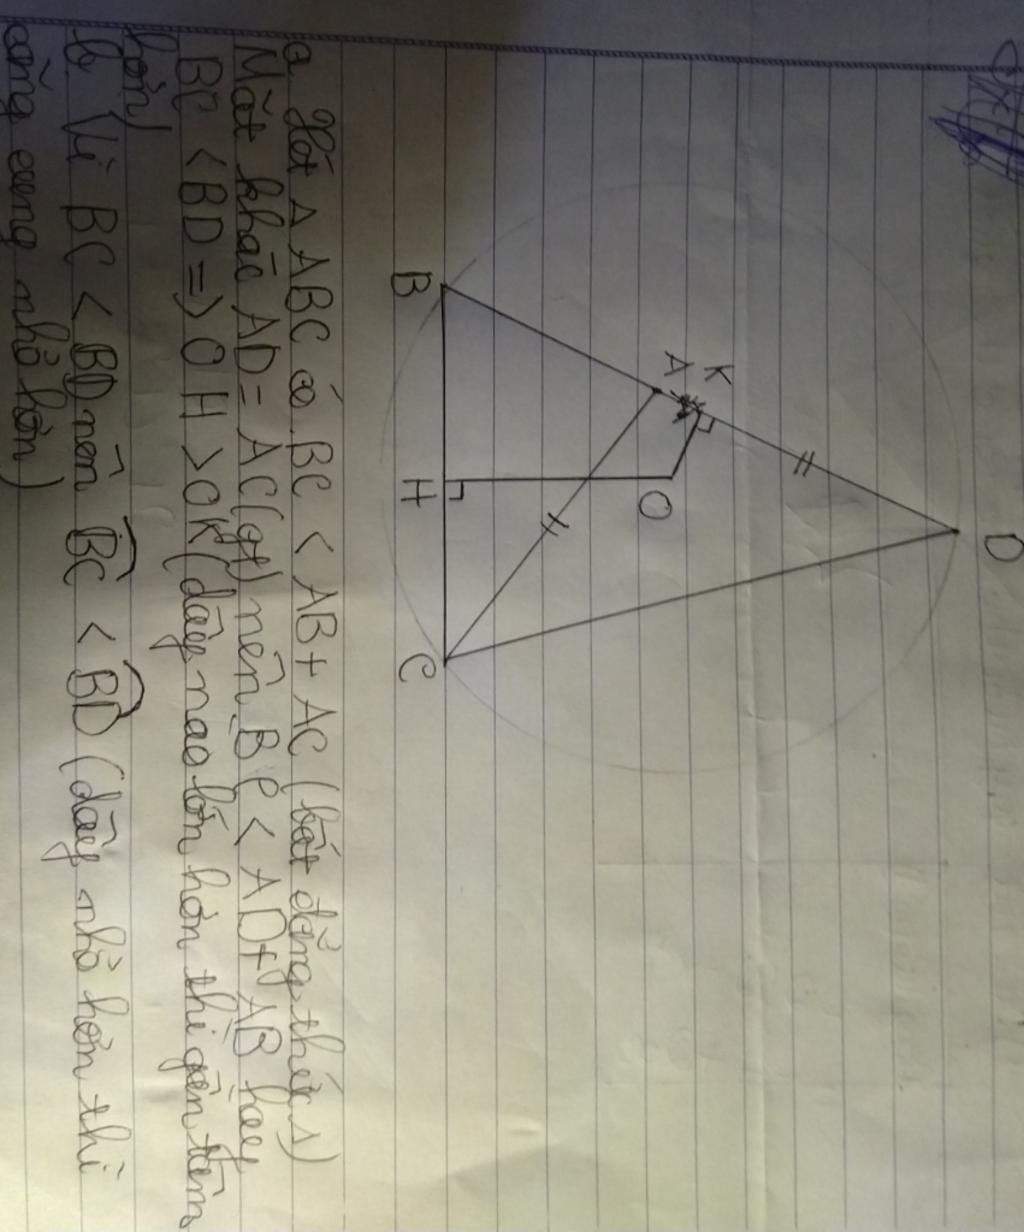 D
K
A
O
B
H
C
a. Xét Δ ABC có. BC < AB + AC (bất đẳng thức Δ)
Mặt khác AD = AC (gt) nên BC < AD + AB hay
BC < BD => OH > OK (dây nào lớn hơn thì gần tâm
hơn)
b. Vì BC < BD nên BC < BD (dây nhỏ hơn thì
căng cung nhỏ hơn)